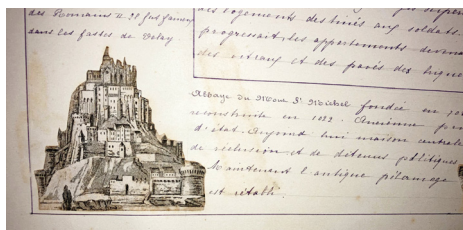 des Romains il est fameux
dans les fastes de Velay
des logements destinés aux soldats.
progressait, les appartements devena
des vitraux et des pavés des briques
Abbaye du Mont St Michel fondée en
reconstruite en 1022. Ancienne
d'état. Aujourd'hui maison centrale
de réclusion et de détenus politiques
Maintenant l'antique pèlerinage
est rétabli.